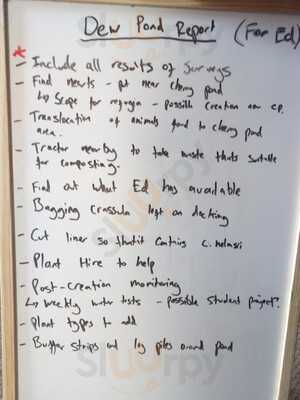 Dew Pond Report (For Ed)
* - Include all results of Surveys
- Find newts - put near cherry pond
↳ Scope for refugia - possible creation on CP.
- Translocation of animals found to cherry pond
area.
- Tractor nearby to take waste thats suitable
for composting.
- Find out what Ed has available
- Bagging crassula left on decking
- Cut liner so that it contains C. helmsii
- Plant Hire to help
- Post-creation monitoring
↳ Weekly water tests - possible student project?
- Plant types to add
- Buffer strips and log piles around pond